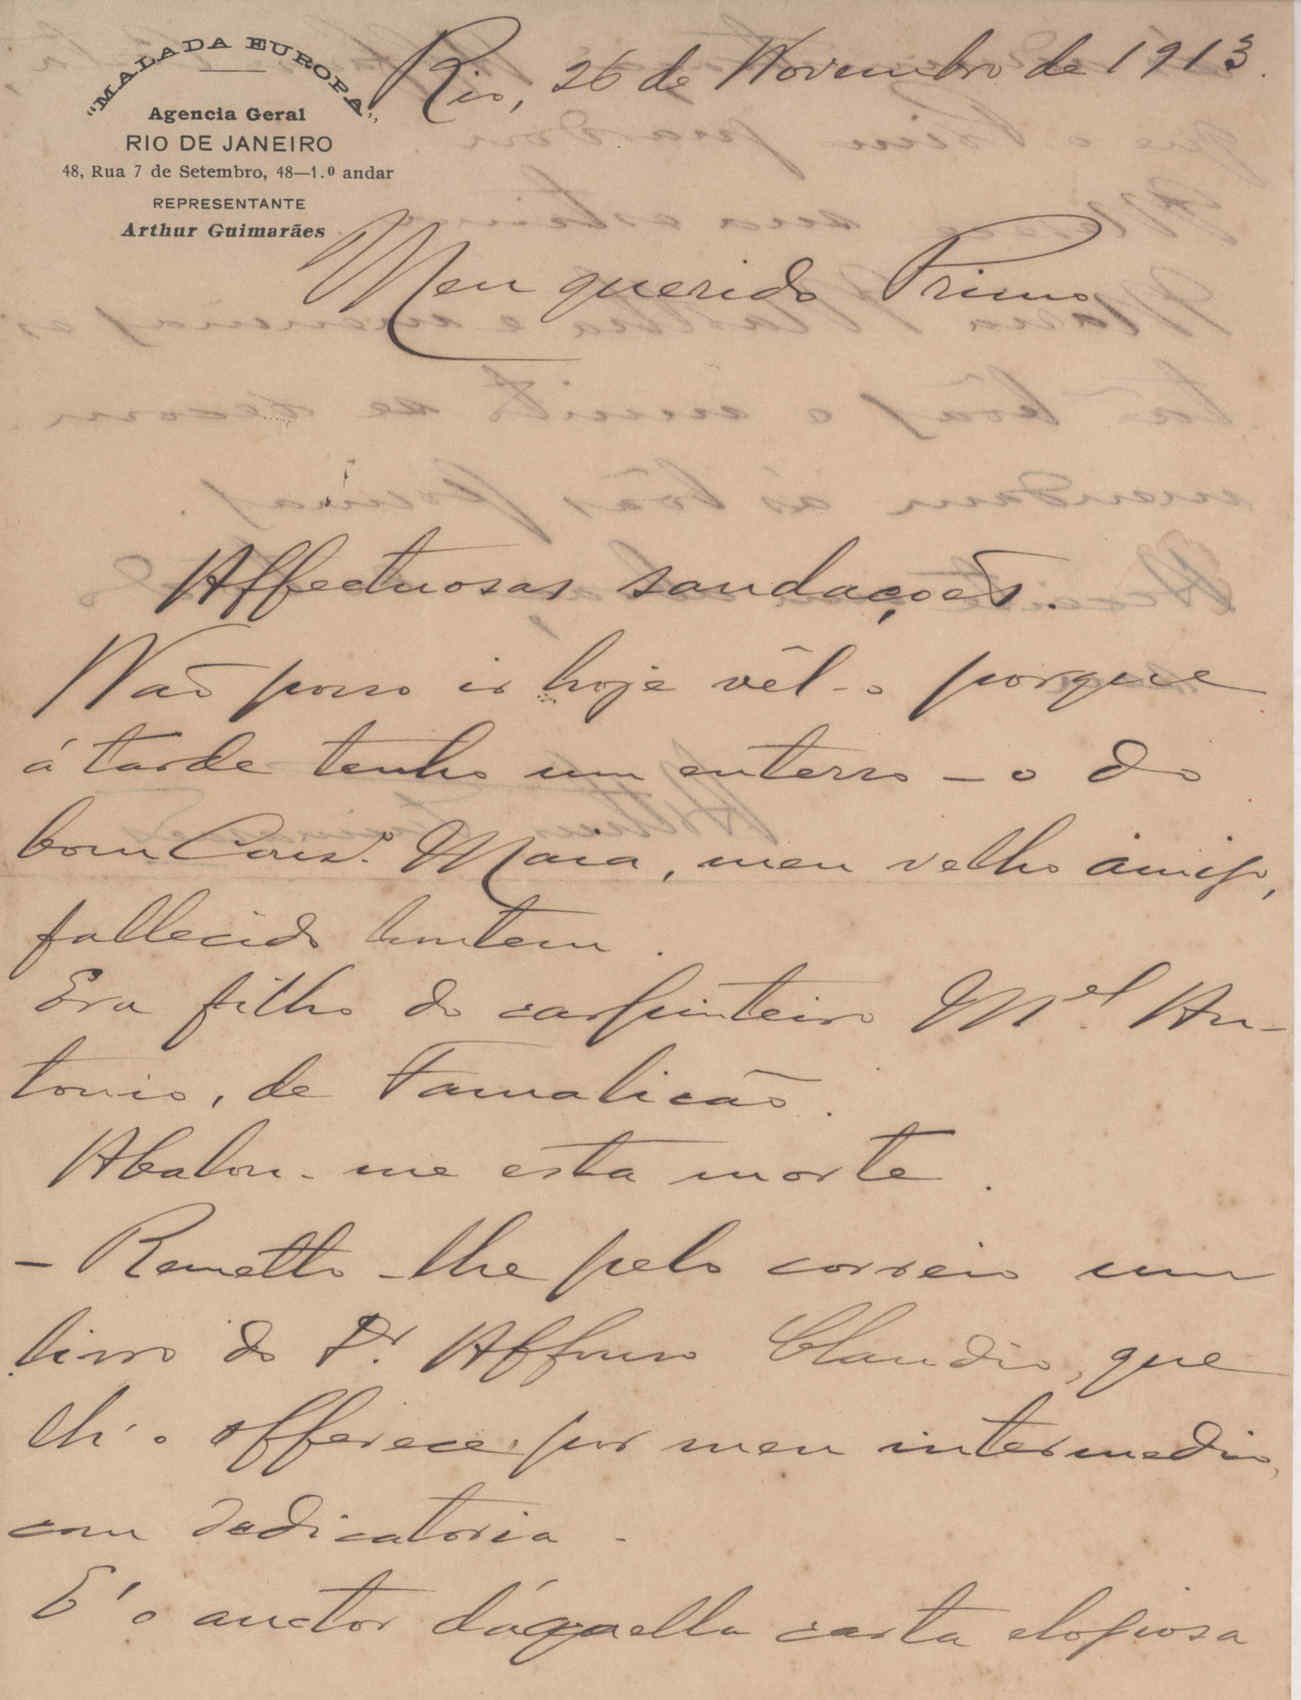 "MALA DA EUROPA"
Agencia Geral
RIO DE JANEIRO
48, Rua 7 de Setembro, 48—1.º andar
REPRESENTANTE
Arthur Guimarães
Rio, 26 de Novembro de 1913.
Meu querido Primo
Affectuosas saudações.
Não posso ir hoje vêl-o porque
á tarde tenho um enterro – o do
bom Cons.º Maia, meu velho amigo,
fallecido hontem.
Era filho do carpinteiro M.el An-
tonio, de Famalicão.
Abalou-me esta morte.
– Remetto-lhe pelo correio um
livro do Dr. Affonso Claudio, que
lh'o offerece por meu intermedio,
com dedicatoria.
E' o auctor d'aquella carta elogiosa